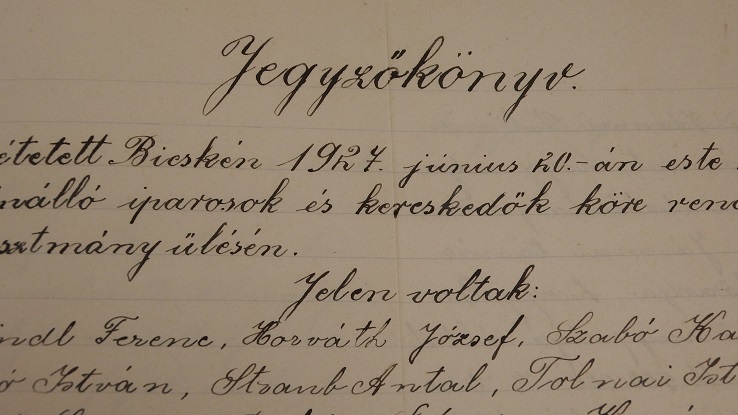 Jegyzőkönyv.
étetett Bicskén 1927. június 20.-án este
nálló iparosok és kereskedők köre rend
sztmány ülésén.
Jelen voltak:
ndl Ferenc, Horváth József, Szabó Ka
ó István, Straub Antal, Tolnai Ist